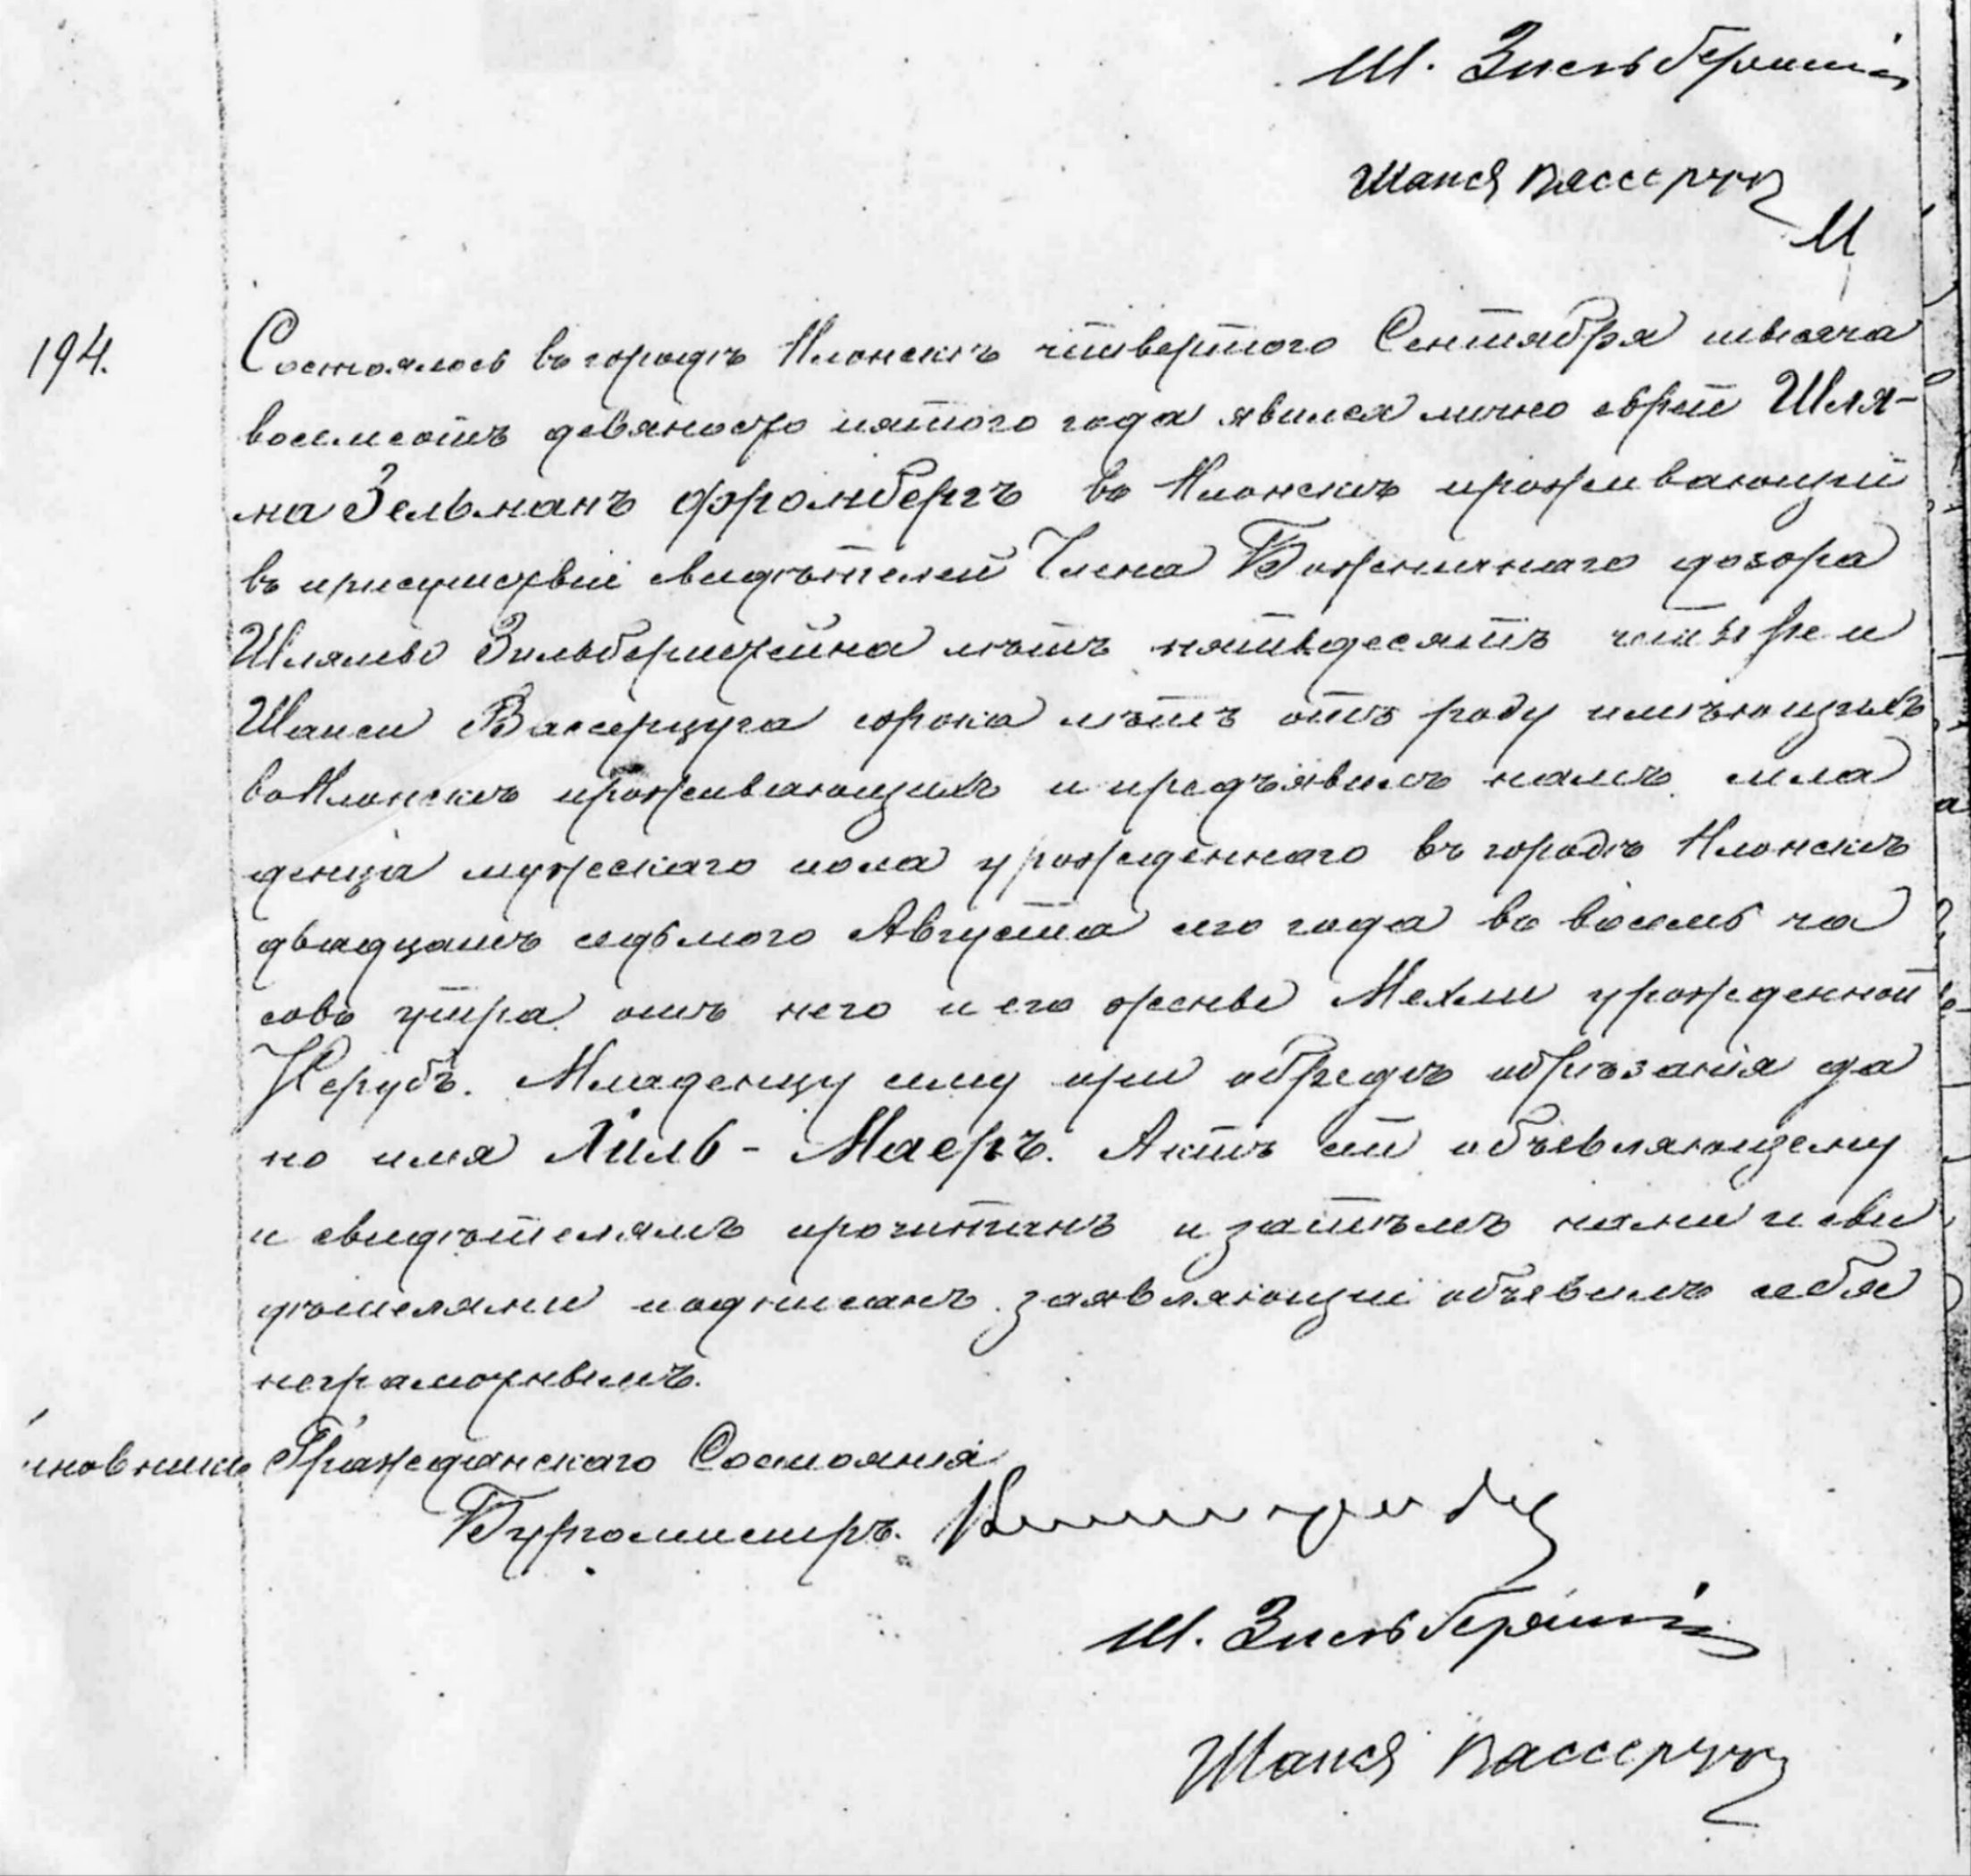 Ш. Зильберштейн
Шапся Вассерцуг
194.
Состоялось въ городѣ Плонскѣ четвертого Сентября тысяча
восемсотъ девяносто пятого года явился лично еврей Шля-
ма Зельманъ Фромбергъ въ Плонскѣ проживающій
въ присутствіи свидѣтелей Члена Божничнаго дозора
Шлямы Зильберштейна лѣтъ пятьдесятъ четыре и
Шапси Вассерцуга сорока лѣтъ отъ роду имѣющихъ
въ Плонскѣ проживающихъ и предъявилъ намъ мла
денца мужескаго пола урожденнаго въ городѣ Плонскѣ
двадцать седьмого Августа сего года въ восемь ча
совъ утра отъ него и его жены Мехли урожденной
Херубъ. Младенцу сему при обрядѣ обрѣзанія да
но имя Хиль - Маеръ. Актъ сей объевляющему
и свидѣтелямъ прочитанъ и затѣмъ нами и сви
дѣтелями подписанъ заявляющій объевилъ себя
неграмотнымъ.
иновникъ Гражданскаго Состоянія
Бургомистръ.
Ш. Зильберштейн
Шапся Вассерцуг